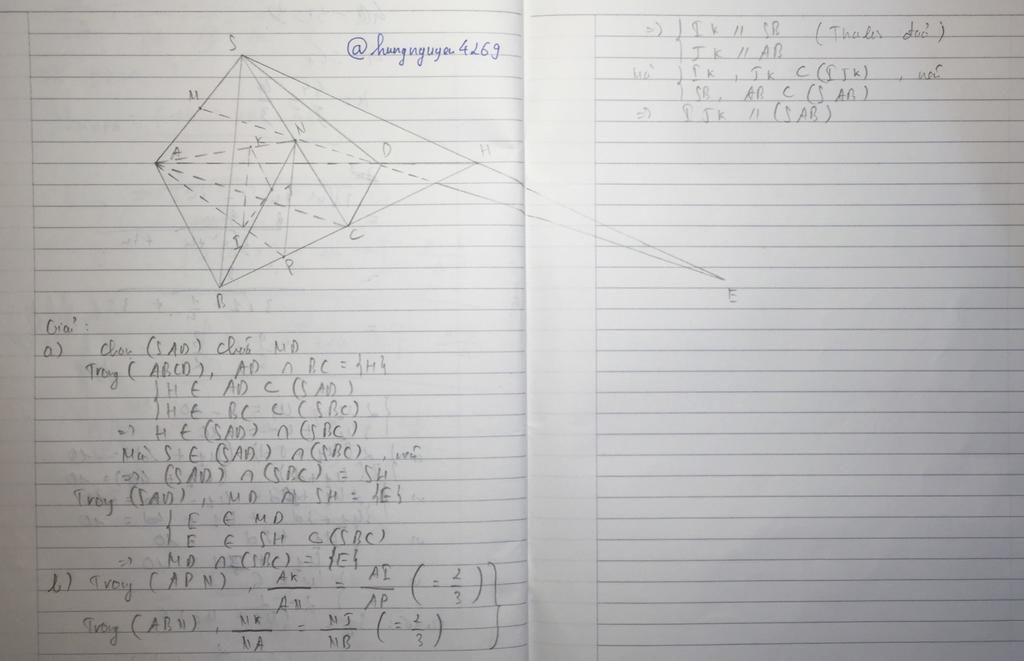 @hungnguyen4269
S
M
N
A
K
D
H
J
I
C
P
B
E
Giải:
a) Chọn (SAD) chứa MD
Trong (ABCD), AD ∩ BC = {H}
{ H ∈ AD ⊂ (SAD)
{ H ∈ BC ⊂ (SBC)
⇒ H ∈ (SAD) ∩ (SBC)
Mà S ∈ (SAD) ∩ (SBC), nên
⇒ (SAD) ∩ (SBC) = SH
Trong (SAD), MD ∩ SH = {E}
{ E ∈ MD
{ E ∈ SH ⊂ (SBC)
⇒ MD ∩ (SBC) = {E}
b) Trong (APN), AK/AN = AI/AP (= 2/3) }
Trong (ABN), NK/NA = NJ/NB (= 2/3) }
⇒ { IK // SB (Thales đảo)
{ JK // AB
Mà { IK, JK ⊂ (IJK), nên
{ SB, AB ⊂ (SAB)
⇒ IJK // (SAB)